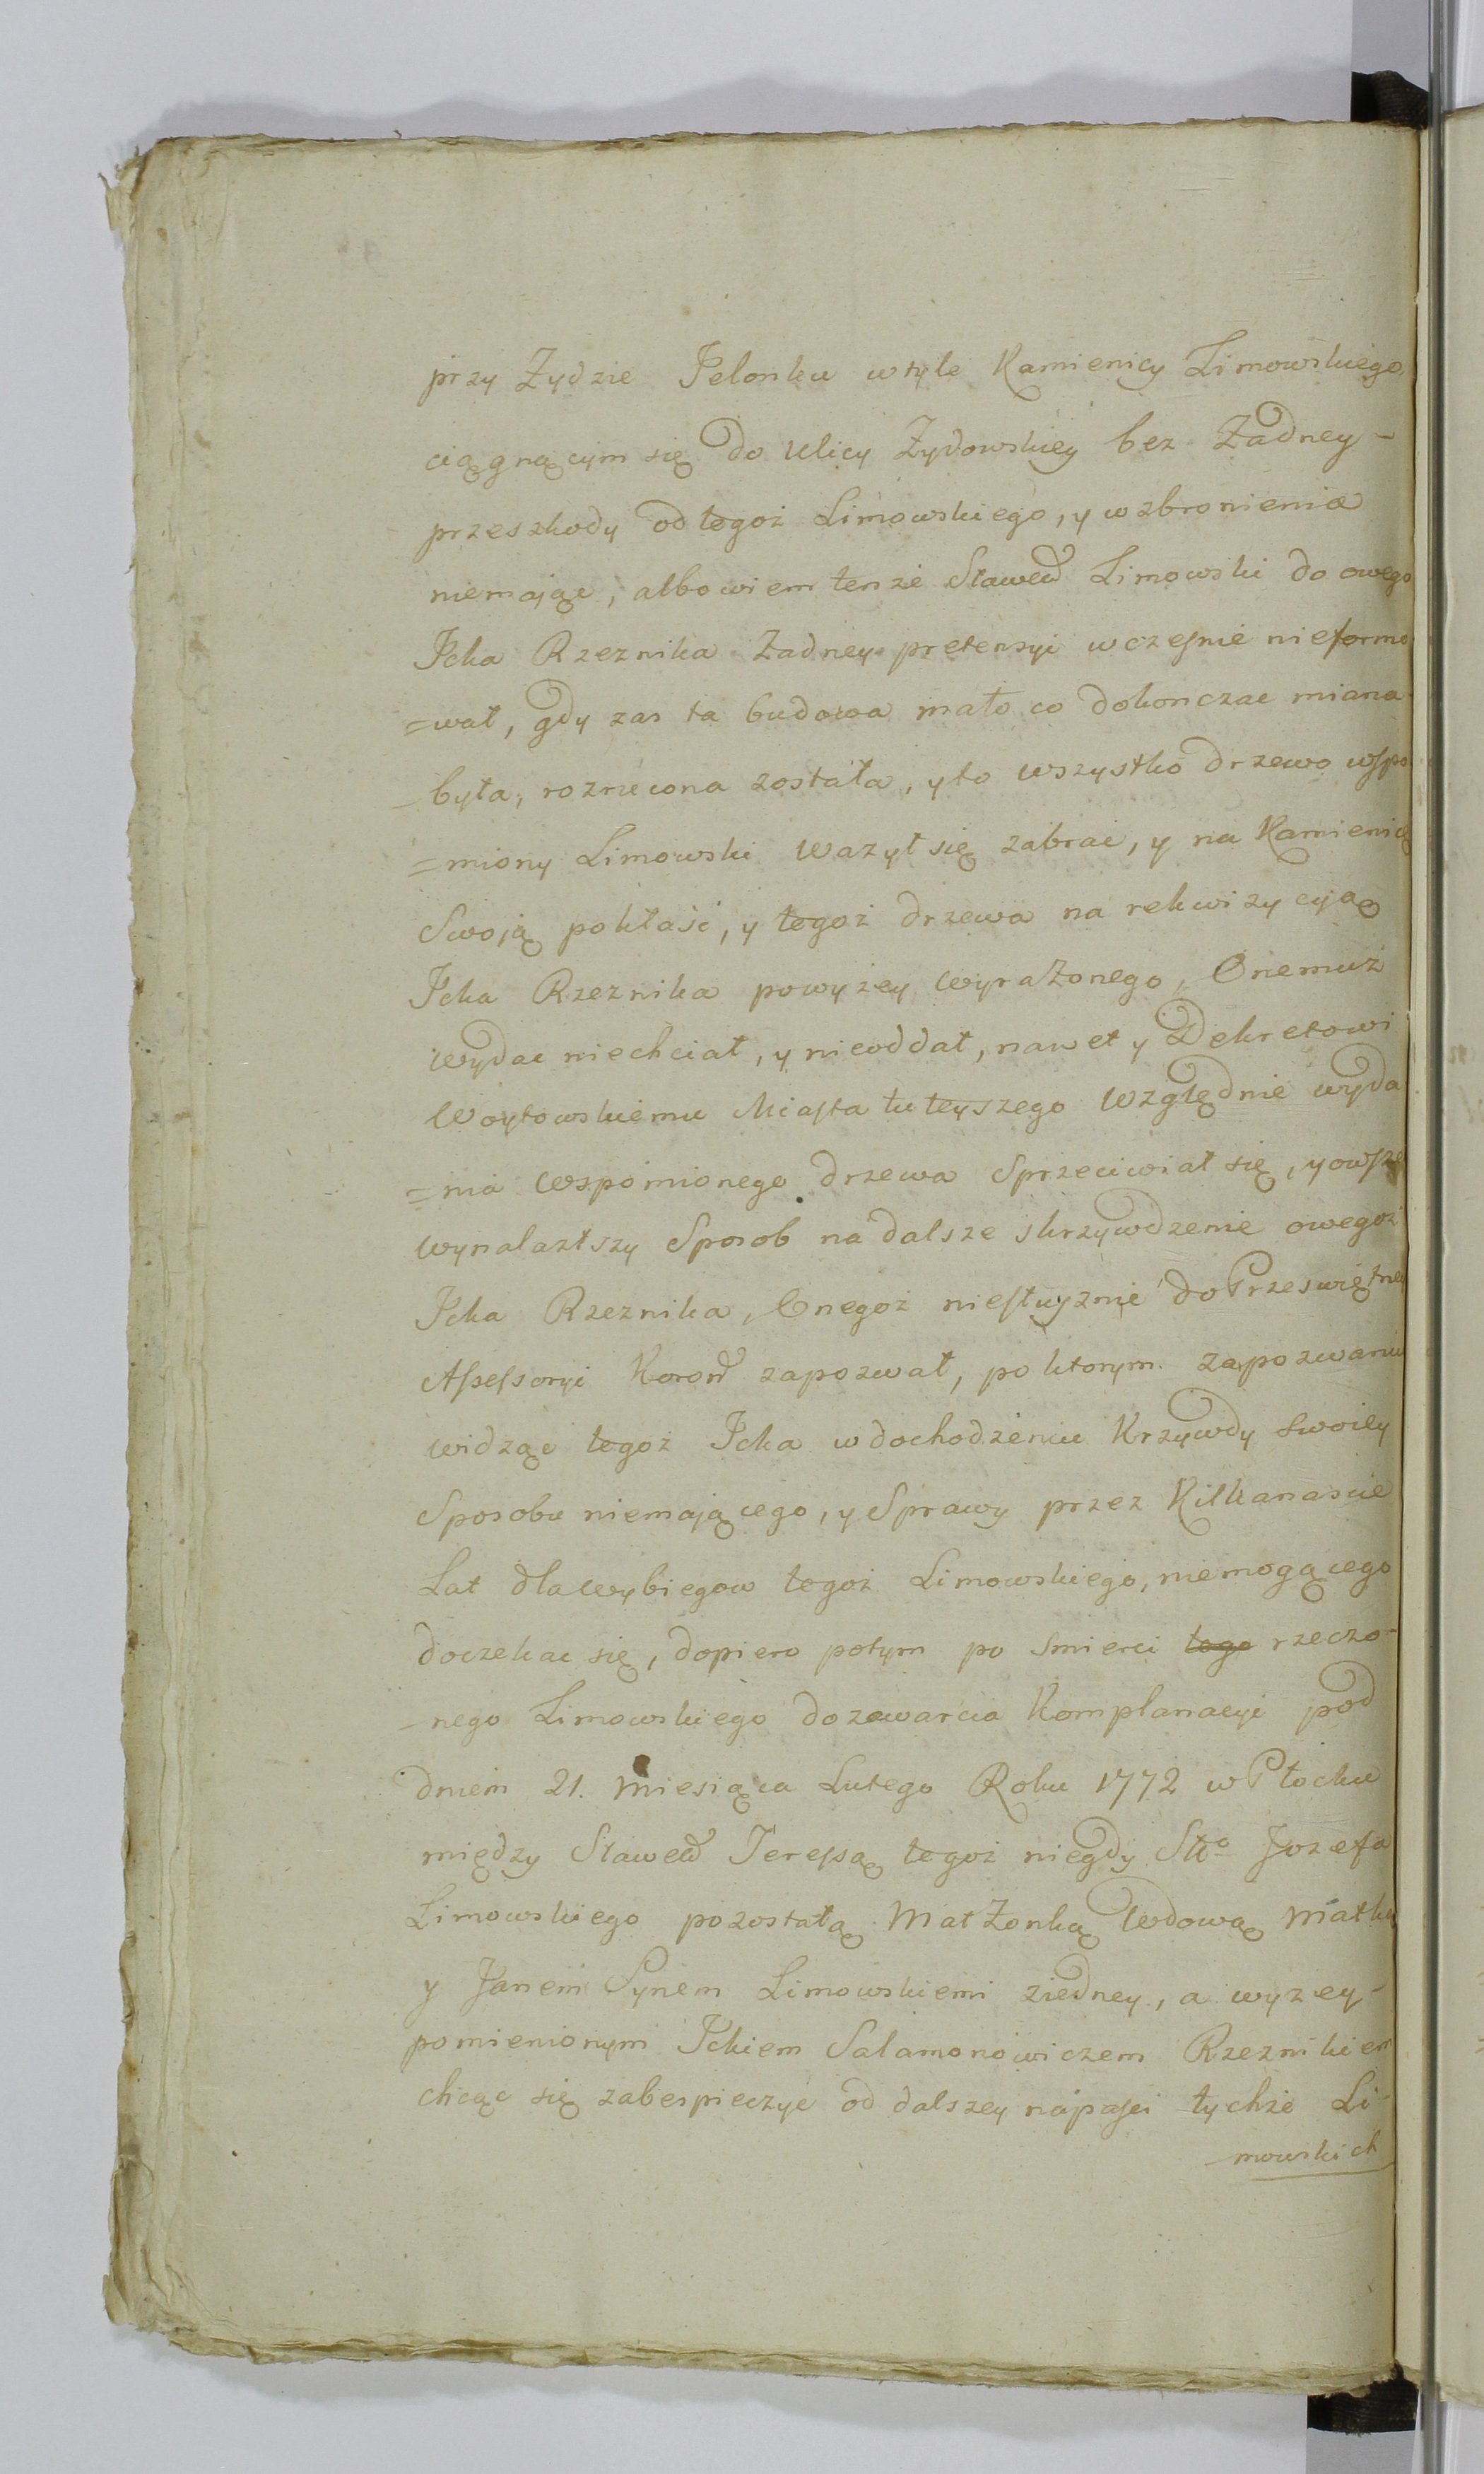 przy Zydzie Jelonku wtyle Kamienicy Limowskiego
ciągnącym się do Ulicy Zydowskiey bez Zadney-
przeszkody od tegoż Limowskiego, y wzbronienia
niemając, albowiem tenże Sławed Limowski do owego
Icka Rzeznika Zadney pretensyi wcześnie nieformo
=wał, gdy zas ta budowa mało co dokonczać miana
-była, rozrucona została, yto wszystko drzewo wspo
=miony Limowski Wazył się zabrać, y na Kamienicę
Swoją pokłaść, y tegoż drzewa na rekwizycyą
Icka Rzeznika powyżey wyrażonego, Onemuż
wydac niechciał, y nieoddał, nawet y Dekretowi
Woytowskiemu Miasta tuteyszego Względnie wyda
=nia wspomionego drzewa Sprzeciwiał się, yowsze
wynalazłszy Sposob na dalsze skrzywdzenie owegoż
Icka Rzeznika, Onegoż niesłusznie do Prześwietney
Assessoryi Koron zapozwał, po ktorym zapozwaniu
widząc tegoż Icka w dochodzeniu Krzywdy Swoiey
Sposobu niemającego, y Sprawy przez Kilkanascie
Lat dla Wybiegow tegoż Limowskiego, niemogącego
doczekac się, dopiero potym po Smierci tego rzeczo-
-nego Limowskiego do zawarcia Komplanacyi pod
dniem 21. Miesiąca Lutego Roku 1772 w Płocku
między Sławed Teressą tegoż niegdy Stto Jozefa
Limowskiego pozostałą Małżonką Wdową Matką
y Janem Synem Limowskiemi ziedney, a wyzey-
pomienionym Ickiem Salamonowiczem Rzeznikiem
chcąc się zabespieczyc od dalszey napaści tychże Li-
mowskich